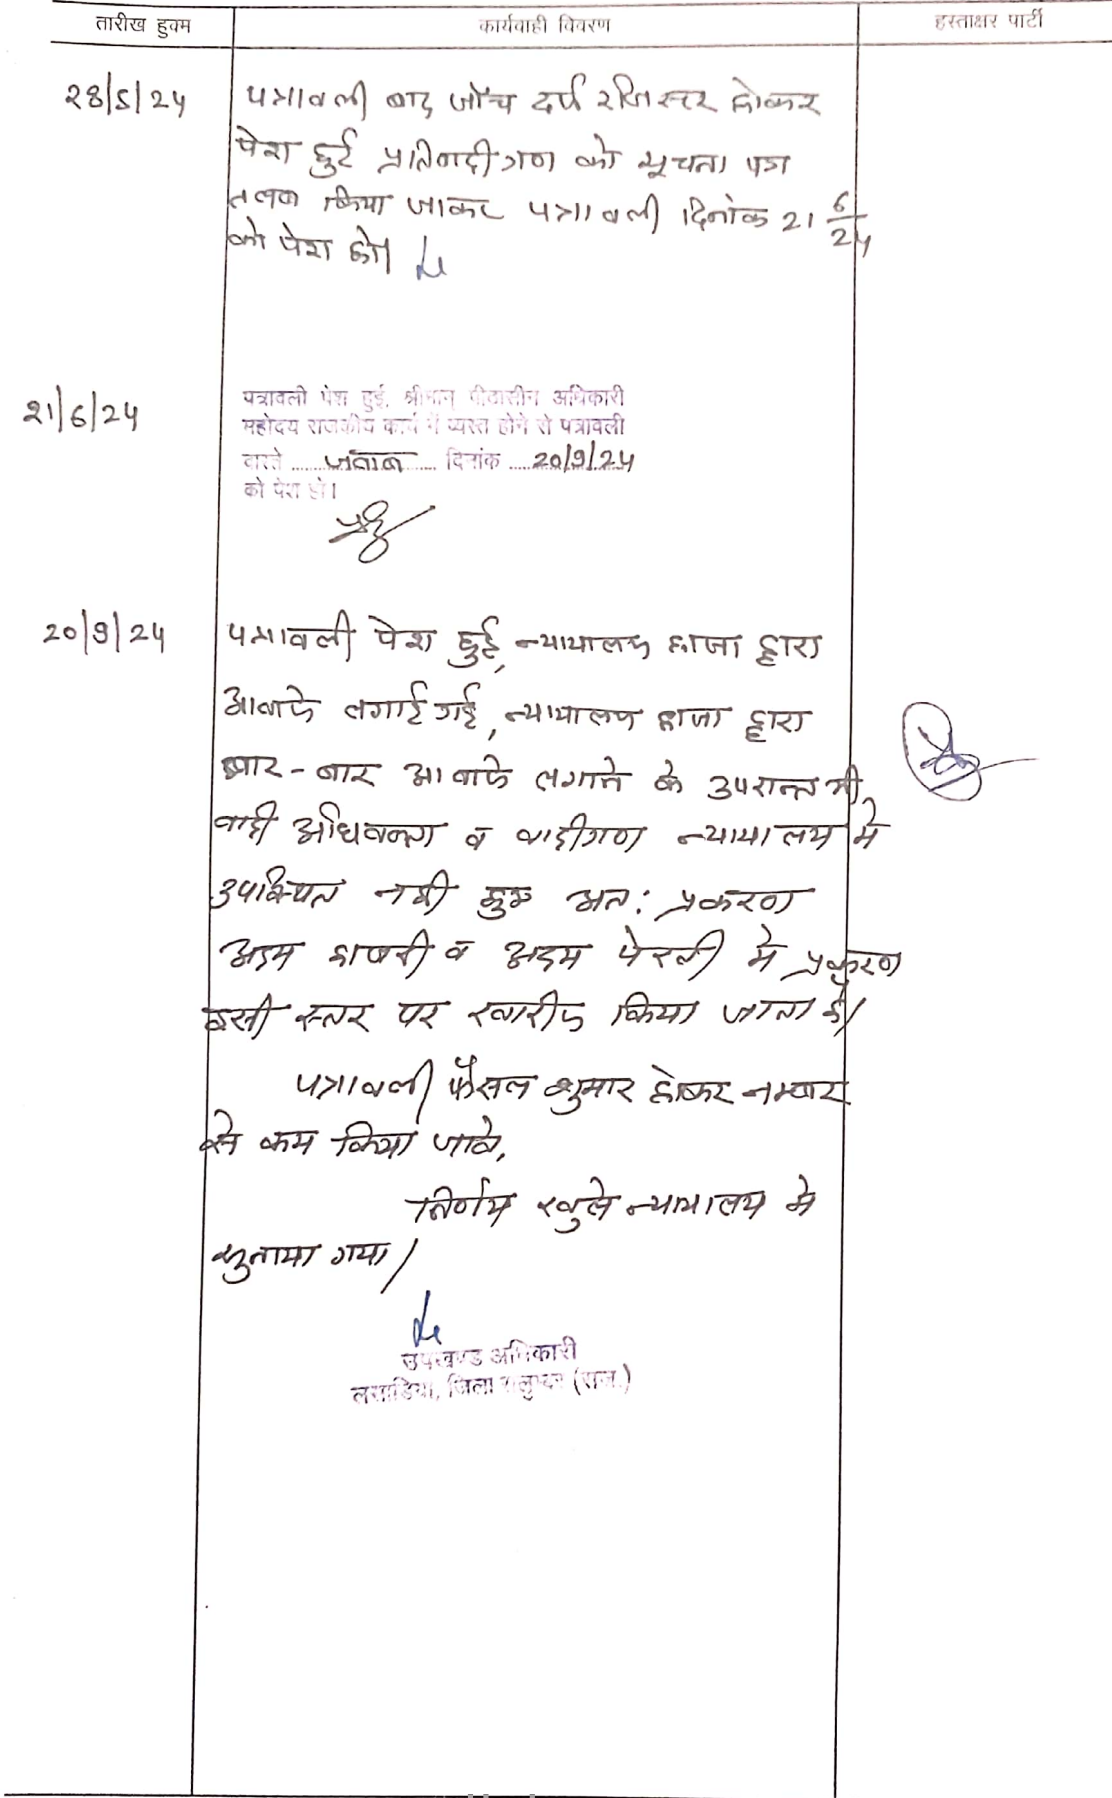 तारीख हुक्म
कार्यवाही विवरण
हस्ताक्षर पार्टी
28/5/24
पत्रावली बाद जाँच दर्ज रजिस्टर होकर
पेश हुई प्रतिवादीगण को सूचना पत्र
तलब किया जाकर पत्रावली दिनांक 21 6/24
को पेश हो।
21/6/24
पत्रावली पेश हुई, श्रीमान् पीठासीन अधिकारी
महोदय राजकीय कार्य में व्यस्त होने से पत्रावली
वास्ते ...... जवाब ...... दिनांक ..... 20/9/24
को पेश हो।
20/9/24
पत्रावली पेश हुई, न्यायालय हाजा द्वारा
आवाजे लगाई गई, न्यायालय हाजा द्वारा
बार-बार आवाजे लगाने के उपरान्त भी
वादी अधिवक्ता व वादीगण न्यायालय मे
उपस्थित नही हुए अत: प्रकरण
अदम हाजरी व अदम पेरवी मे प्रकरण
इसी स्तर पर खारीज किया जाता है।
पत्रावली फैसल शुमार होकर नम्बर
से कम किया जावे,
निर्णय खुले न्यायालय मे
सुनाया गया।
उपखण्ड अधिकारी
लसाडिया, जिला सलुम्बर (राज.)